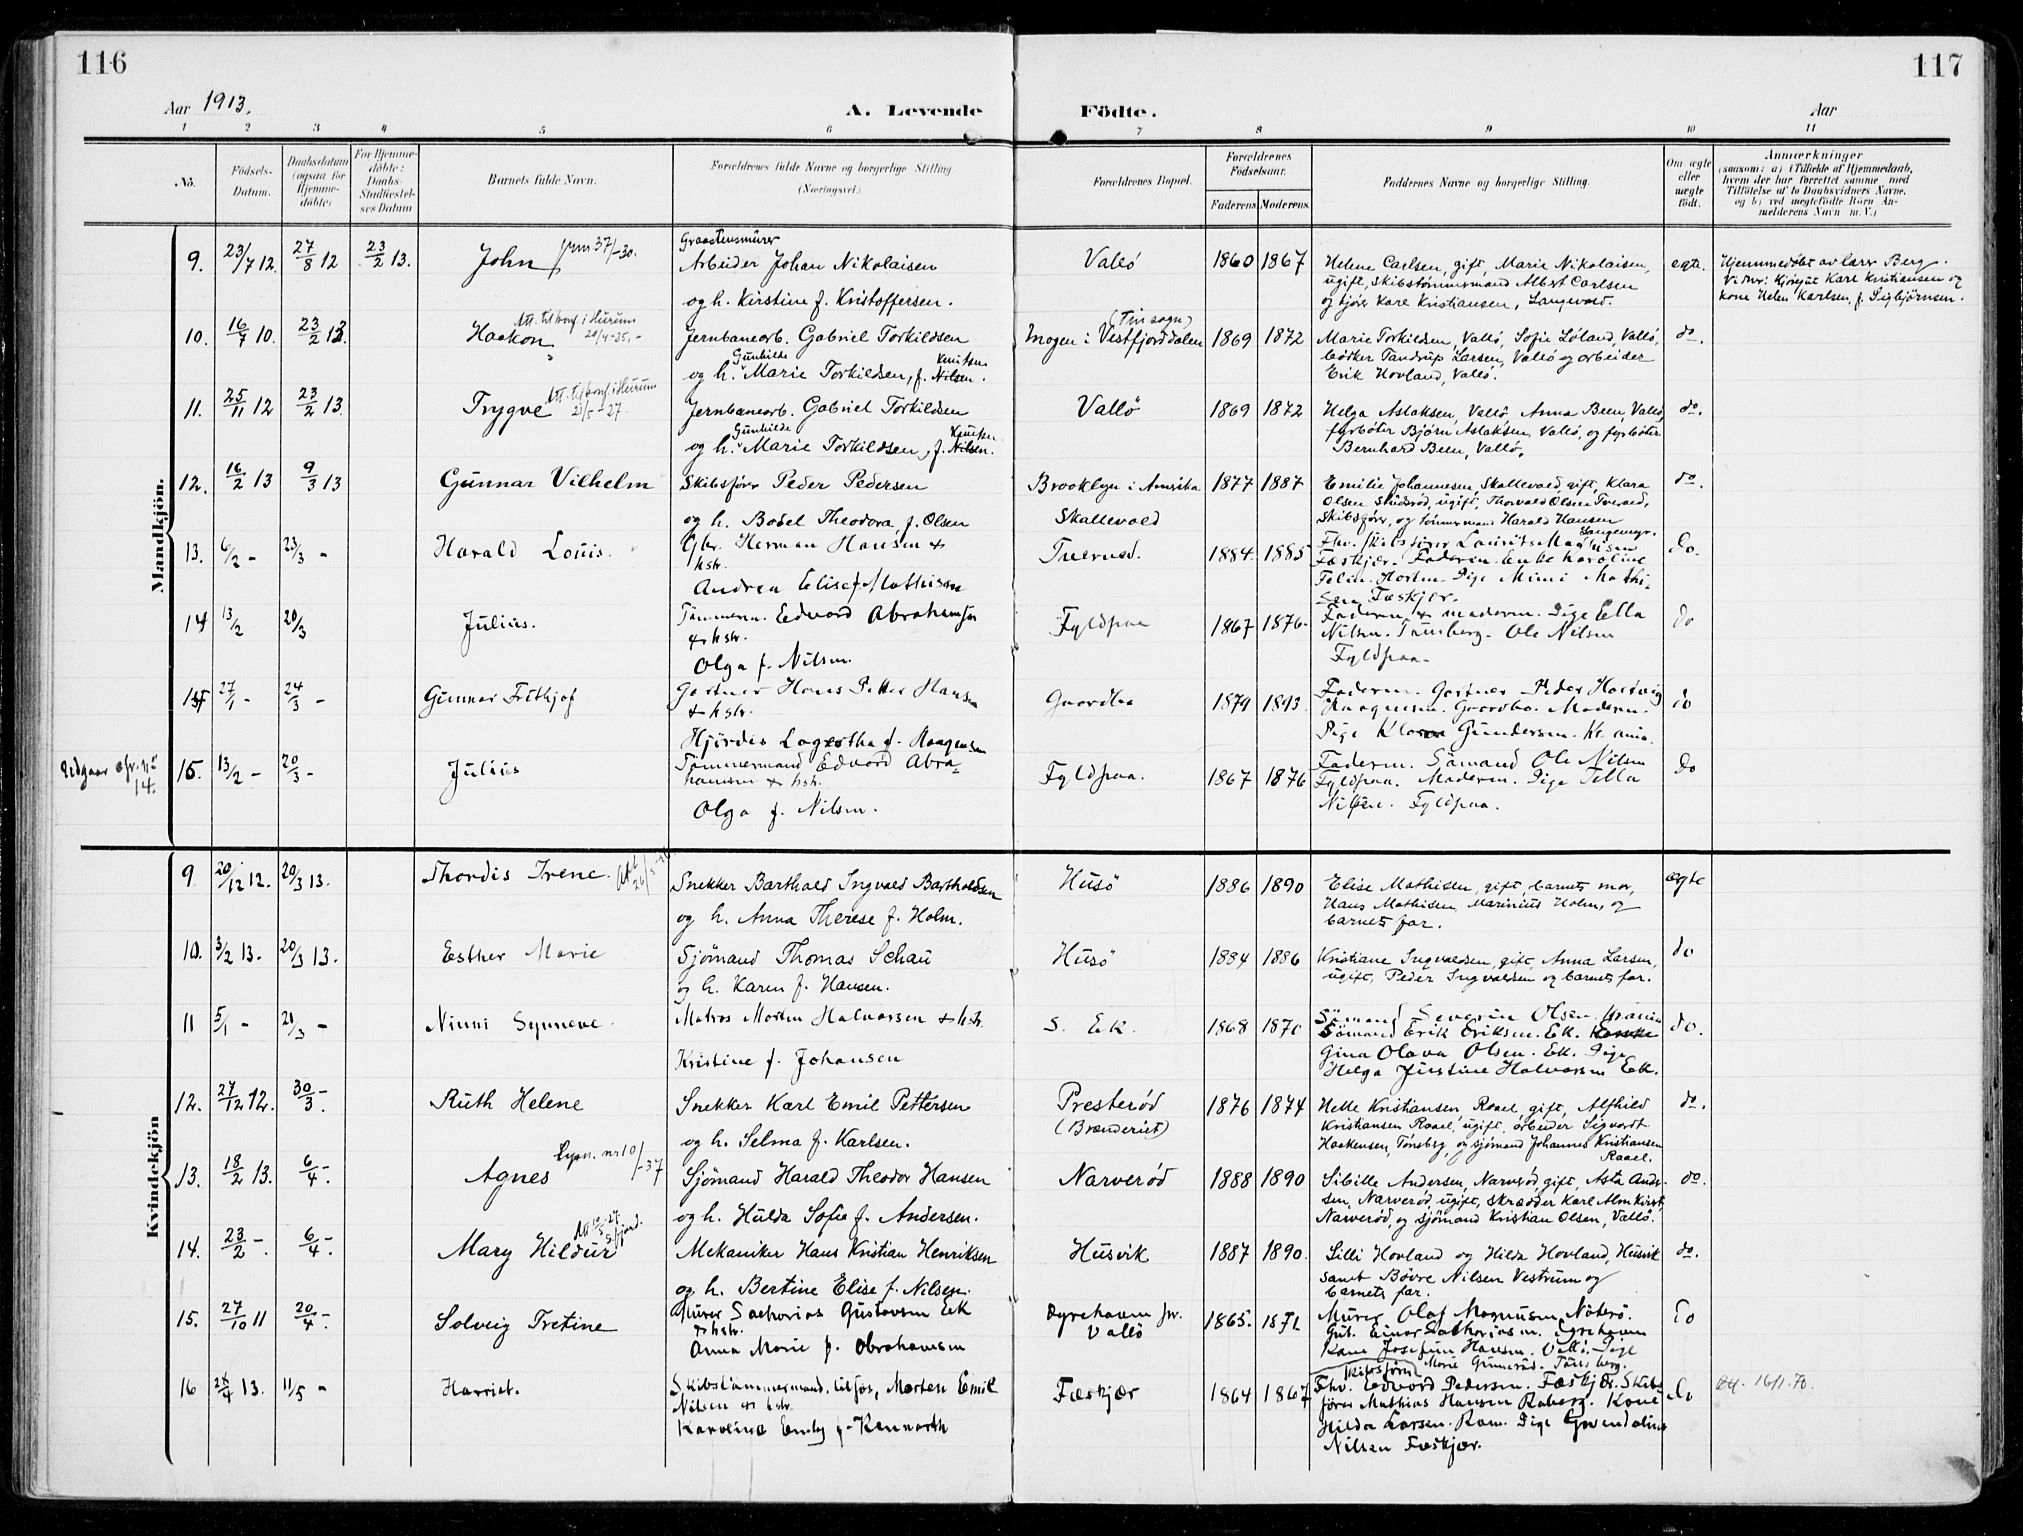 116
117
Aar 1913.
A. Levende Födte.
Aar
1 2 3 4 5 6 7 8 9 10 11
No.
Födsels-Datum.
Daabsdatum (ogsaa for Hjemme-döbte)
For Hjemme-döbte: Daabs-Stadfæstel-ses Datum
Barnets fulde Navn.
Forældrenes fulde Navne og borgerlige Stilling. (Næringsvei.)
Forældrenes Bopæl.
Forældrenes Födselsaar.
Faderens Moderens.
Faddernes Navne og borgerlige Stilling.
Om ægte eller uægte födt.
Anmærkninger
(saasom: a) i Tilfælde af Hjemmedaab, hvem der har forrettet samme med Tilföielse af to Daabsvidners Navne, og b) ved uægtefödte Börn An-melderens Navn m. V.)
Mandkjön.
9. 23/7 12. 27/8 12 23/2 13. John
Graastensmurer
Arbeider Johan Nikolaisen
og h. Kirstine f. Kristoffersen.
Vallö 1860 1867
Helene Carlsen, gift, Marie Nikolaisen,
ugift, Skibstømmermand Albert Carlsen
og kjører Karl Kristiansen,
egte.
Hjemmedøbt av lærer Berg.
Karl Kristiansen og
kone Helen Karlsen, f. Sigbjörnsen.
10. 16/7 10. 23/2 13. Haakon
Att. til konf. i Hurum
20/4-25.
Jernbanearb. Gabriel Torkildsen
og h. Gunhilde Marie Torkildsen, f. Nilsen. Knutsen
(Tin sogn)
Mogen i Vestfjorddalen 1869 1872
Marie Torkildsen, Vallö, Sofie Løland, Vallö,
bødker Tandrup Larsen, Vallö og arbeider
Erik Hovland, Vallö.
do.
11. 25/11 12 23/2 13. Trygve
Att. til konf. i Hurum
Jernbanearb. Gabriel Torkildsen
og h. Gunhilde Marie Torkildsen, f. Nilsen. Knutsen
Vallö 1869 1872
Helga Aslaksen, Vallö, Anna Been, Vallö,
fyrbøter Björn Aslaksen, Vallö, og fyrbøter
Bernhard Been, Vallö.
do.
12. 16/2 13 9/3 13 Gunnar Vilhelm
Skibsfører Peder Pedersen
og h. Bodel Theodora f. Olsen
Brooklyn i Amerika
Skallevold
1877 1887
Emilie Johannesen, Skallevold, gift, Klara
Olsen ugift, Thorvald Olsen
Skibsfører, og tömmermand Harald Hansen
do.
13. 6/2 - 23/3 - Harald Louis.
Herman Hansen +
hstr.
Andrea Elise f. Mathisen
1884. 1885
do.
14 13/2 20/3 Julius.
Tömmerm. Edvard Abrahamsen
+ hstr.
Olga f. Nilsen.
Fyldpaa 1867 1876.
Faderen + moderen. Pige Ella
Nilsen. Tønsberg. Ole Nilsen
Fyldpaa.
do
15 27/1 - 24/3 - Gunnar Frithjof
Gartner Hans Petter Hansen
+ hstr.
Hjördis Lagertha f. Haagensen
1879 1893.
Faderen. Gartner Peder Hartvig
Moderen.
Pige Klara Gundersen. Kr.ania.
do
Udgaar cfr. no 14.
15. 13/2 - 20/3 - Julius
Tömmermand Edvard Abra-
hamsen + hstr.
Olga f. Nilsen.
Fyldpaa. 1867 1876
Faderen. Sömand Ole Nilsen
Fyldpaa. Moderen. Pige Tella
Nilsen. Fyldpaa.
do
Kvindekjön
9 20/12 12. 20/3 13. Thordis Irene.
Snekker Barthald Ingvald Bartholdsen
og h. Anna Therese f. Holm.
Husö 1886 1890
Elise Mathisen, gift, barnets mor,
Hans Mathisen, Marinius Holm, og
barnets far.
ægte
10. 3/2 13. 20/3 13. Esther Marie
Sjömand Thomas Schau
og h. Karen f. Hansen.
Husö 1884 1886
Kristiane Ingvaldsen, gift, Anna Larsen,
ugift, Peder Ingvaldsen og barnets far.
do
11 5/1 - 21/3 - Ninni Synneve.
Matros Morten Halvorsen + hstr.
Kristine f. Johansen
S. Ek. 1868
Sömand Severin Olsen.
Sömand Erik Eriksen. Ek.
Gina Olava Olsen. Ek. Pige
Helga Justine Halvorsen Ek.
do.
12. 27/12 12. 30/3 -. Ruth Helene
Snekker Karl Emil Pettersen
og h. Selma f. Karlsen.
Presterød
(Brænderiet)
1876 1874
Helle Kristiansen, Raael, gift, Alfhild
Kristiansen Raael, ugift, arbeider Sigvardt
Haakensen, Tönsberg, og sjömand Johannes Kristiansen
Raael.
do.
13. 18/2 13. 6/4 -. Agnes
Lysn. nr 10/-37
Sjömand Harald Theodor Hansen
og h. Hulda Sofie f. Andersen.
Narverød 1888 1890
Sibille Andersen, Narverød, gift, Asta Ander-
sen, Narverød, ugift, skrædder Karl
Narverød, og sjömand Kristian Olsen, Vallö.
do.
14. 23/2 -. 6/4 -. Mary Hildur
Mekaniker Hans Kristian Henriksen
og h. Bertine Elise f. Nilsen.
Husvik 1887 1890.
Silli Hovland og Hilda Hovland, Husvik
samt Børre Nilsen Vestrum og
barnets far.
do.
15. 27/10 11 20/4 -. Solveig Tretine
Murer Sacharias Gustavsen Eek
+ hstr.
Anna Marie f. Abrahamsen
Vallö
1865. 1871
Murer Olaf Magnusen Nöterö.
Kone Josefine Hansen. Vallö. Pige
Marie Tönsberg.
do
16 4 13. 11/5 - Harriet.
Skibstömmermand, tilsjös, Morten Emil
Nilsen + hstr.
Karoline Emly f. Kenworth
Fæskjær 1864 1867
Skibsförer
Fhv. Edvard Pedersen. Fæskjær. Skibs-
förer Mathias Hansen Kone
Hilda Larsen. Ram. Pige Gwendoline
Nilsen Fæskjær.
do
Att. 16/1.70.